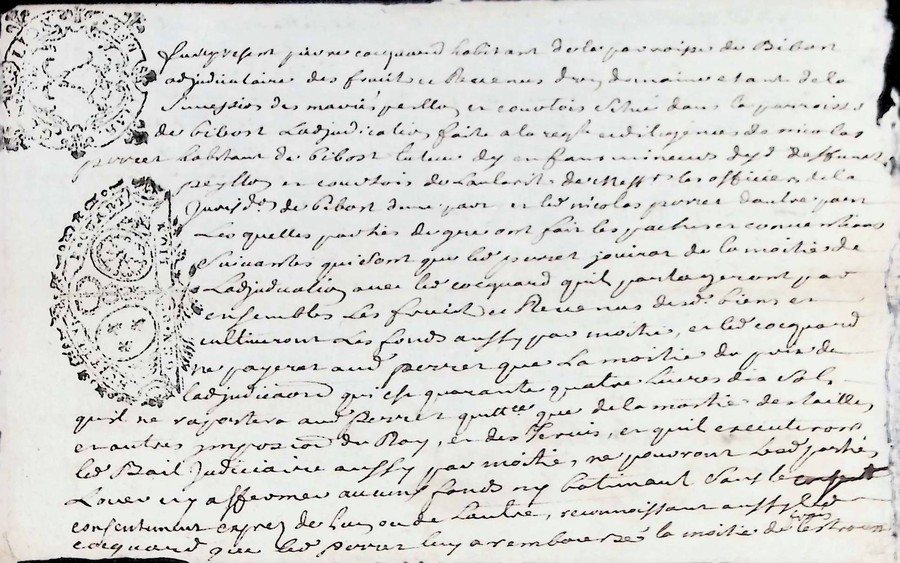 Fut present pierre cocquard habitant de la parroisse de Bibost
adjudicataire des fruits et Revenus d'un domaine etant de la
Succession des mariés peillon et courtois scitué dans la parroisse
de bibost Ladjudication faite a la reqte et diligence de nicolas
perret habitant de bibost tuteur des enfans mineurs desd deffunts
peyllon et courtois de Lautorité de Messrs les officiers de la
Jurisdon de bibost dune part et led nicolas perret dautre part
Lesquelles parties de gre ont fait les paches et conventions
Suivantes qui sont que led perret jouirat de la moitie de
Ladjudication avec led cocquard quil partageront par
ensembles Les fruits et Revenus desd biens et
cultiveront Les fonds aussy par moitie, et led cocquard
ne payerat aud perret que La moitie du prix de
ladjudicaon qui est quarante quatre Livres dix sols
quil ne raportera aud Perret quittce que de la moitie des tailles
et autres imposicion du Roy, et des Servis, et quil executeront
led Bail Judiciaire aussy par moitie, ne pouvront Lesd parties
Louer ny affermer aucuns fonds ny batimant Sans le
consentement exprez de lun ou de Lautre, reconnoissant aussy led
cocquard que led perret luy a remboursé la moitie de